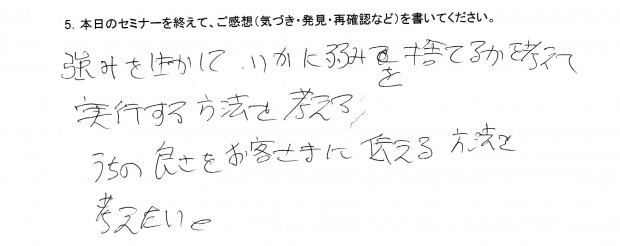 5. 本日のセミナーを終えて、ご感想（気づき・発見・再確認など）を書いてください。
強みを生かして、いかに弱みを捨てるかを考えて
実行する方法を考える
うちの良さをお客さまに伝える方法を
考えたいと